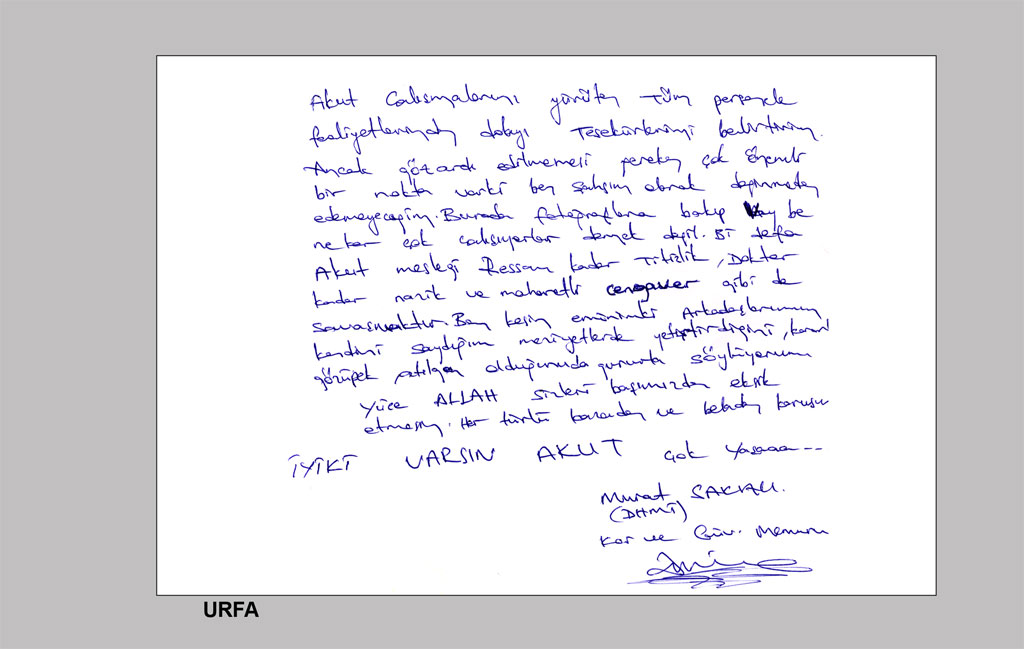 Akut Calışmalarını yürüten tüm personele
faaliyetlerinden dolayı Teşekürlerimi belirtirim.
Ancak göz ardı edilmemesi gereken çok önemli
bir nokta varki ben şahsım olarak değinmeden
edemeyeceğim. Burada fotoğraflara bakıp Vay be
ne kar çok calısıyorlar demek değil. Bi defa
Akut mesleği Ressam kadar Titizlik, Doktor
kadar nazik ve maharetli cengaver gibi de
savaşmaktır. Ben kesin eminimki Arkadaşlarımın
kendini saydığım meziyetlerde yetiştirdiğini,
gözüpek atılgan olduğunuda gururla söylüyorum
Yüce ALLAH sizleri başımızdan eksik
etmesin. Her türlü kazadan ve beladan korusun
İYİKİ VARSIN AKUT çok yaşaaa---
Murat
(DHMİ)
Kor ve Güv. Memuru
URFA